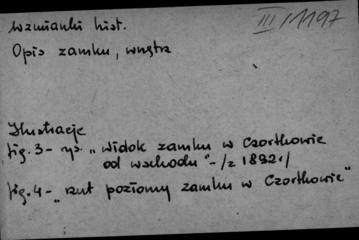 wzmianki hist.
III/1197
Opis zamku, wnętrz
Ilustracje
fig. 3 - rys. "Widok zamku w Czortkowie
od wschodu" - /z 1892r/
fig. 4 - "rzut poziomy zamku w Czortkowie"